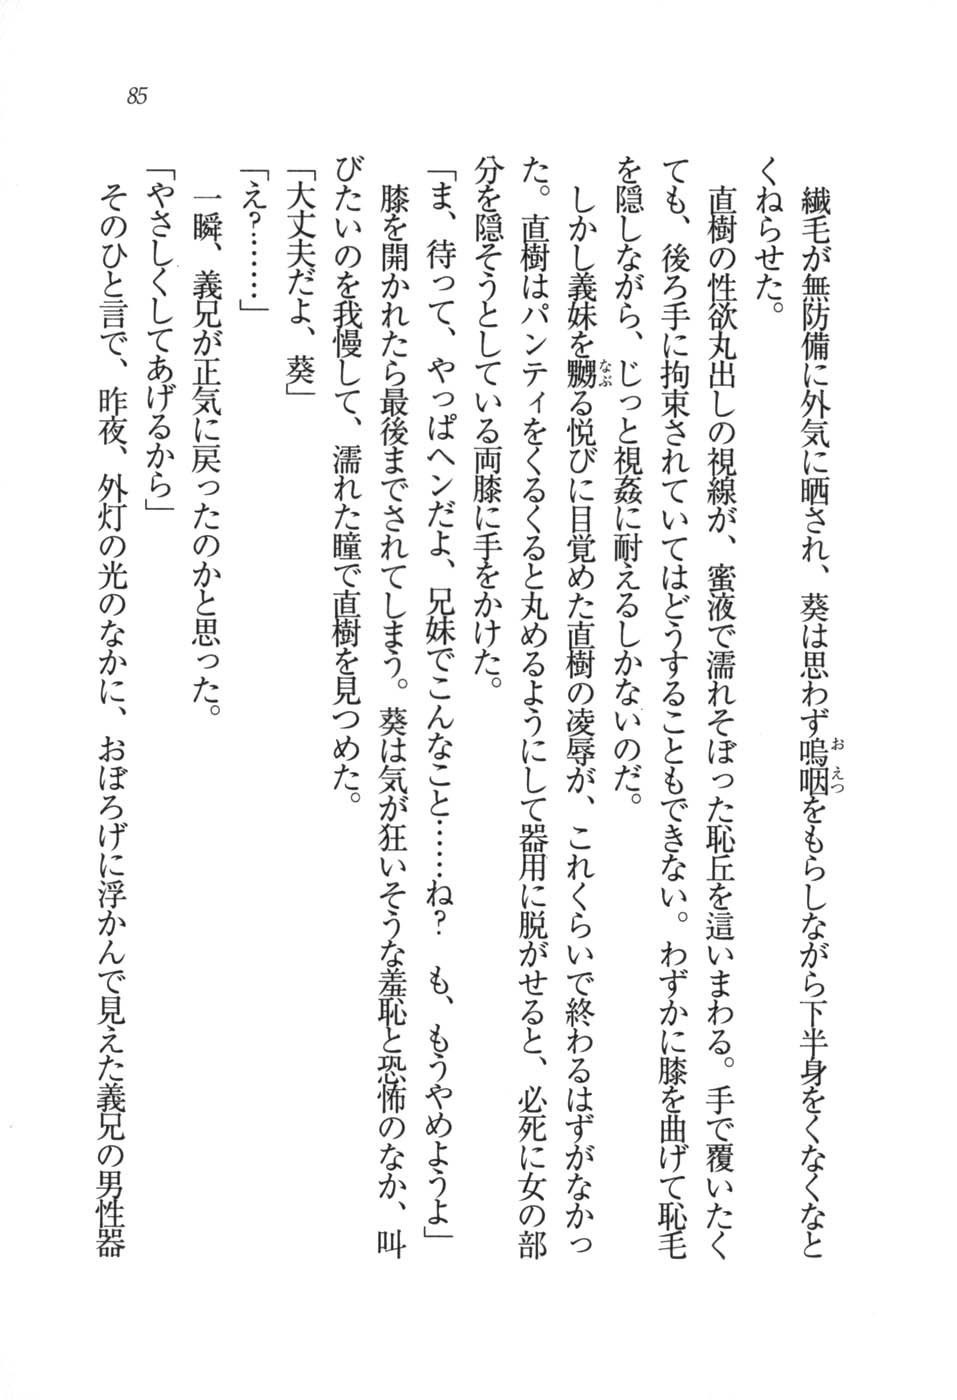 85
繊毛が無防備に外気に晒され、葵は思わず嗚咽をもらしながら下半身をくなくなと
くねらせた。
直樹の性欲丸出しの視線が、蜜液で濡れそぼった恥丘を這いまわる。手で覆いたく
ても、後ろ手に拘束されていてはどうすることもできない。わずかに膝を曲げて恥毛
を隠しながら、じっと視姦に耐えるしかないのだ。
しかし義妹を嬲る悦びに目覚めた直樹の凌辱が、これくらいで終わるはずがなかっ
た。直樹はパンティをくるくると丸めるようにして器用に脱がせると、必死に女の部
分を隠そうとしている両膝に手をかけた。
「ま、待って、やっぱヘンだよ、兄妹でこんなこと……ね？　も、もうやめようよ」
膝を開かれたら最後までされてしまう。葵は気が狂いそうな羞恥と恐怖のなか、叫
びたいのを我慢して、濡れた瞳で直樹を見つめた。
「大丈夫だよ、葵」
「え？……」
一瞬、義兄が正気に戻ったのかと思った。
「やさしくしてあげるから」
そのひと言で、昨夜、外灯の光のなかに、おぼろげに浮かんで見えた義兄の男性器